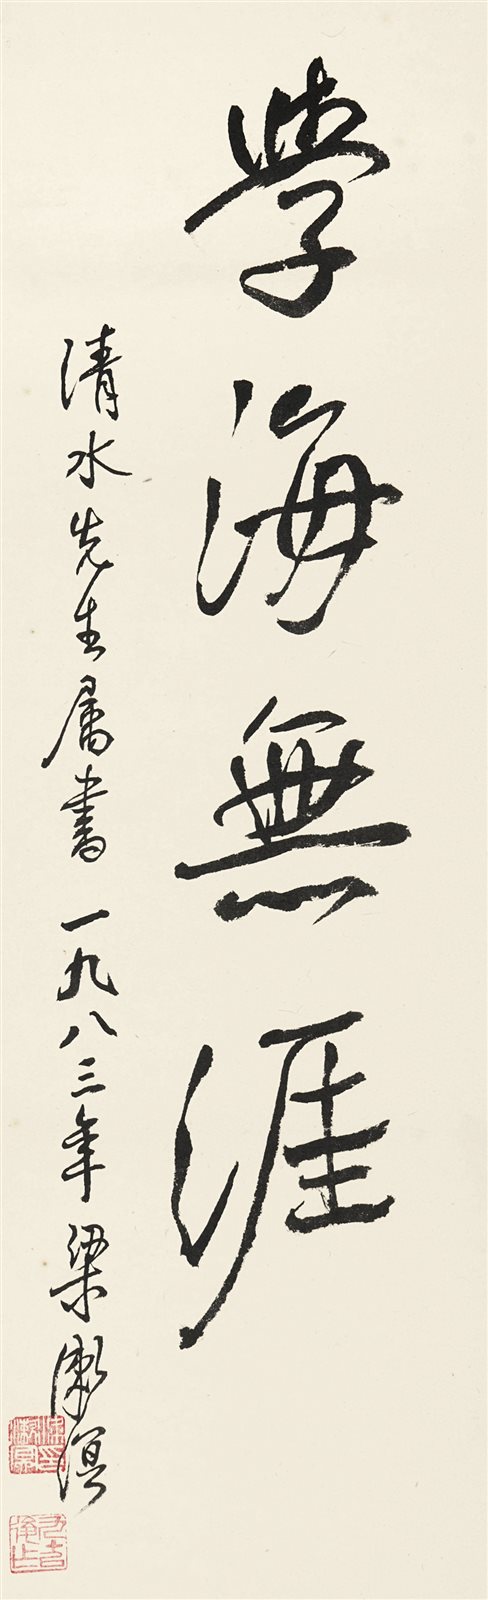 學海無涯
清水先生屬書 一九八三年 梁漱溟